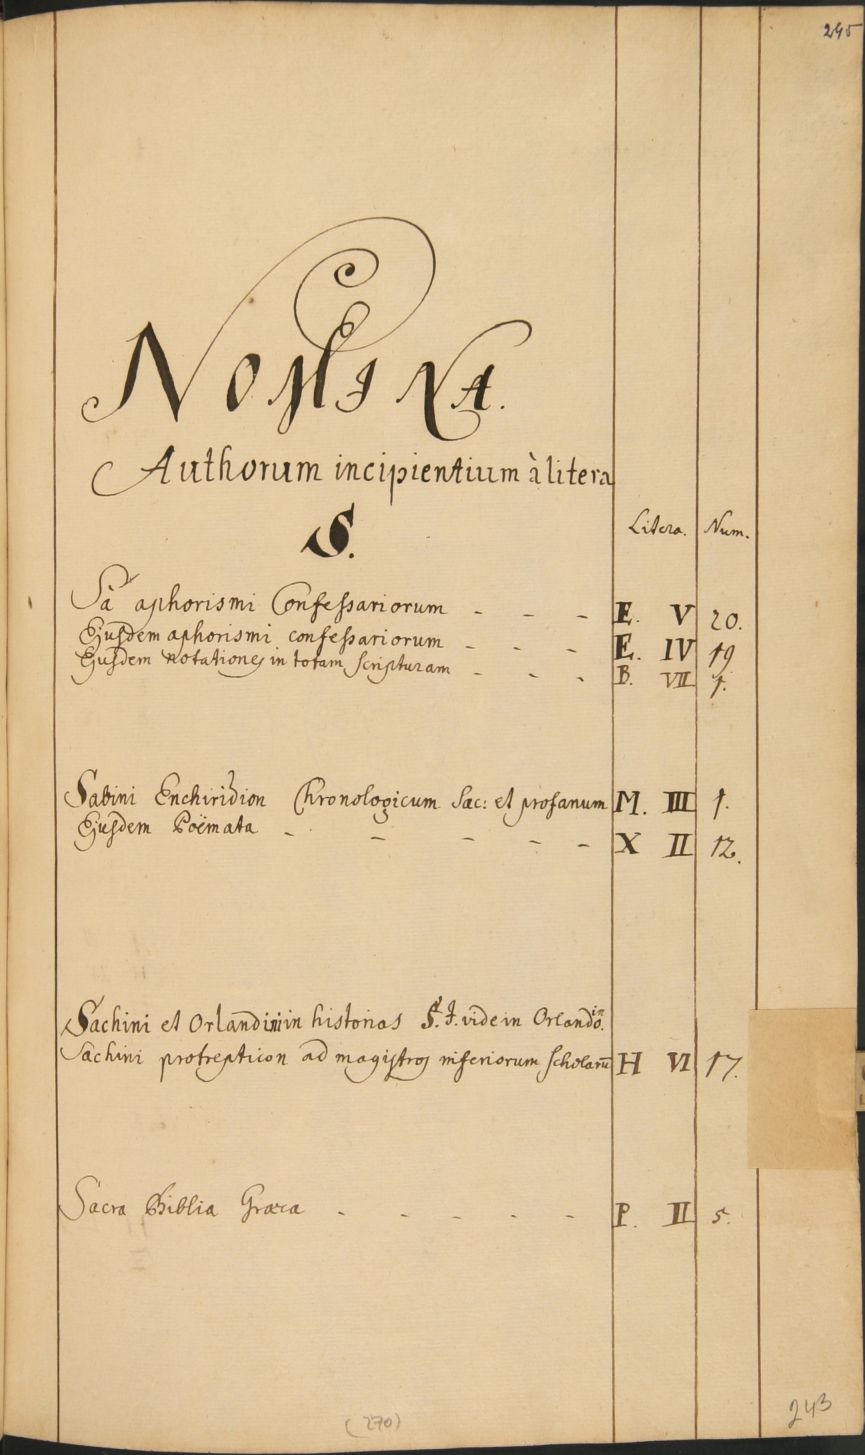 245
NOMINA.
Authorum incipientium à litera
S.
Litera. Num.
Sà aphorismi Confessariorum - - - E. V 20.
Ejusdem aphorismi confessariorum - - - E. IV 19
Ejusdem Notationes in totam scripturam - - - B. VII 1.
Sabini Enchiridion Chronologicum Sac: et profanum M. III 1.
Ejusdem Poëmata - - - - - X II 12.
Sachini et Orlandini in historias S. J. vide in Orlandino.
Sachini protrepticon ad magistros inferiorum scholarū H VI 17.
Sacra Biblia Græca - - - - - P. II 5.
(270)
243